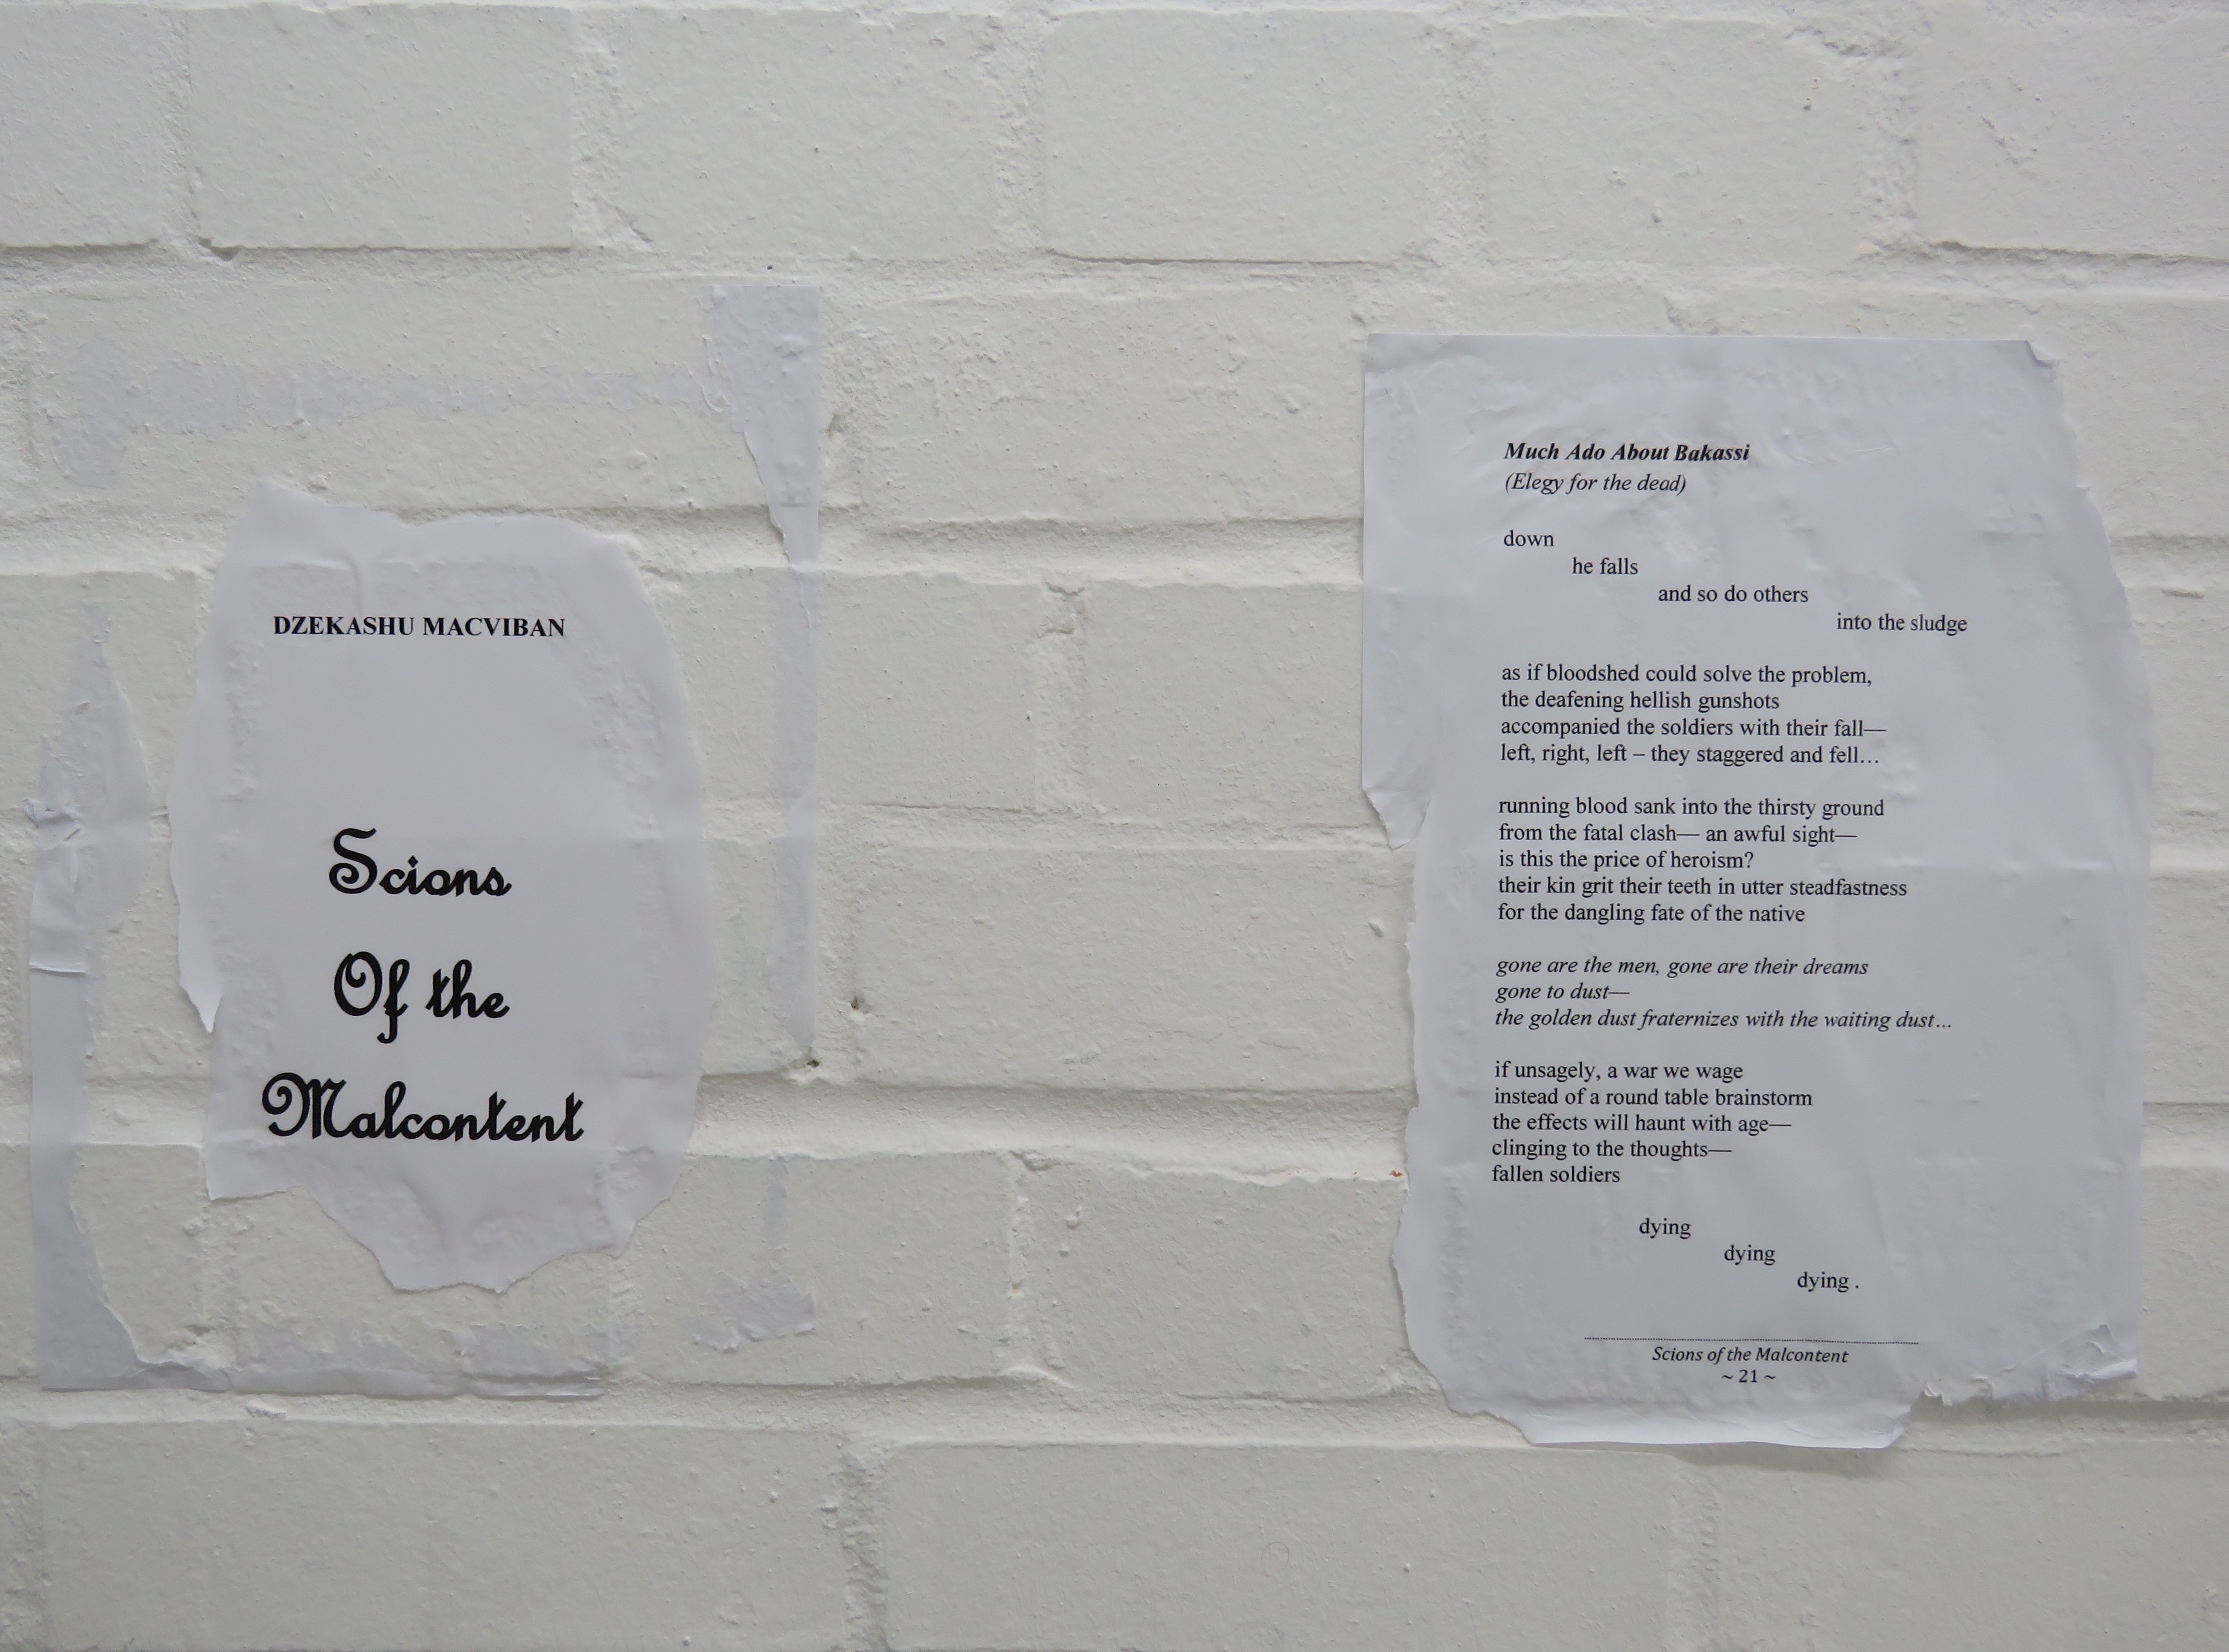 DZEKASHU MACVIBAN
Scions
Of the
Malcontent
Much Ado About Bakassi
(Elegy for the dead)
down
he falls
and so do others
into the sludge
as if bloodshed could solve the problem,
the deafening hellish gunshots
accompanied the soldiers with their fall—
left, right, left – they staggered and fell…
running blood sank into the thirsty ground
from the fatal clash— an awful sight—
is this the price of heroism?
their kin grit their teeth in utter steadfastness
for the dangling fate of the native
gone are the men, gone are their dreams
gone to dust—
the golden dust fraternizes with the waiting dust…
if unsagely, a war we wage
instead of a round table brainstorm
the effects will haunt with age—
clinging to the thoughts—
fallen soldiers
dying
dying
dying .
Scions of the Malcontent
~ 21 ~